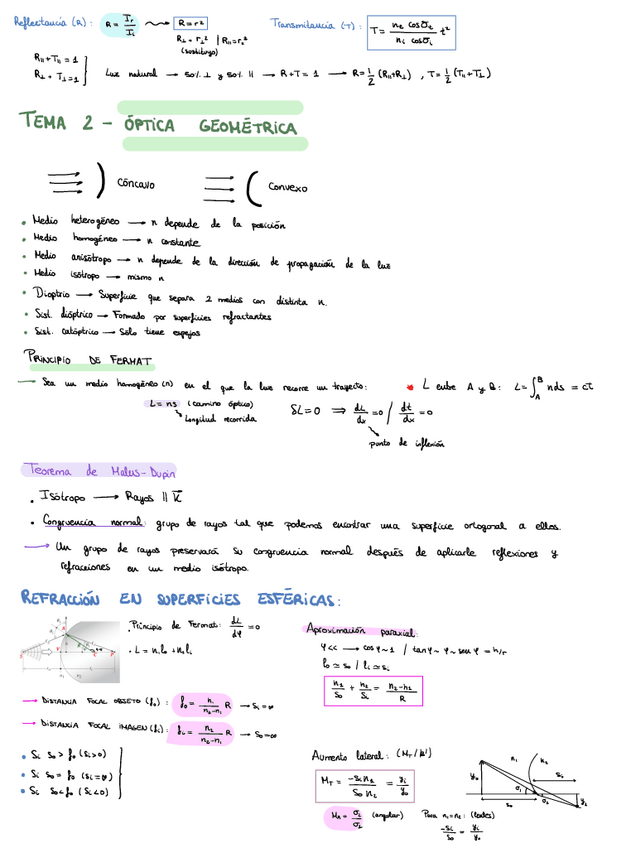 Reflectancia (R): R = Ir/Ii → R = r²
Transmitancia (T): T = (nt cosθt)/(ni cosθi) t²
R⊥ = r⊥² | R∥ = r∥²
(sustituyo)
R∥ + T∥ = 1
R⊥ + T⊥ = 1
Luz natural → 50% ⊥ y 50% ∥ → R+T = 1 → R = 1/2 (R∥+R⊥) , T = 1/2 (T∥+T⊥)
TEMA 2 - ÓPTICA GEOMÉTRICA
Cóncavo
Convexo
• Medio heterogéneo → n depende de la posición
• Medio homogéneo → n constante
• Medio anisótropo → n depende de la dirección de propagación de la luz
• Medio isótropo → mismo n
• Dioptrio → Superficie que separa 2 medios con distinta n.
• Sist. dióptrico → Formado por superficies refractantes
• Sist. catóptrico → Sólo tiene espejos
PRINCIPIO DE FERMAT
→ Sea un medio homogéneo (n) en el que la luz recorre un trayecto:
* L entre A y B: L = ∫_A^B nds = cτ
L = ns (camino óptico)
Longitud recorrida
δL = 0 ⇒ dL/dx = 0 / dt/dx = 0
punto de inflexión
Teorema de Malus-Dupin
• Isótropo → Rayos ∥ K
• Congruencia normal: grupo de rayos tal que podemos encontrar una superficie ortogonal a ellos.
→ Un grupo de rayos preservará su congruencia normal después de aplicarle reflexiones y
refracciones en un medio isótropo.
REFRACCIÓN EN SUPERFICIES ESFÉRICAS:
• Principio de Fermat: dL/dφ = 0
• L = n₁l₀ + n₂li
Aproximación paraxial:
φ << → cosφ ~ 1 / tanφ ~ φ ~ senφ = h/r
l₀ ≃ s₀ / li ≃ si
n₁/s₀ + n₂/si = (n₂-n₁)/R
→ DISTANCIA FOCAL OBJETO (f₀): f₀ = n₁/(n₂-n₁) R → si = ∞
→ DISTANCIA FOCAL IMAGEN (fi): fi = n₂/(n₂-n₁) R → s₀ = ∞
• Si s₀ > f₀ (si>0)
• Si s₀ = f₀ (si=∞)
• Si s₀ < f₀ (si<0)
Aumento lateral: (MT/β')
MT = -si n₁/(s₀ n₂) = yi/y₀
MA = σi/σ₀ (angular)
Para n₁=n₂: (lentes)
-si/s₀ = yi/y₀
n₁
n₂
y₀
s₀
si
yi